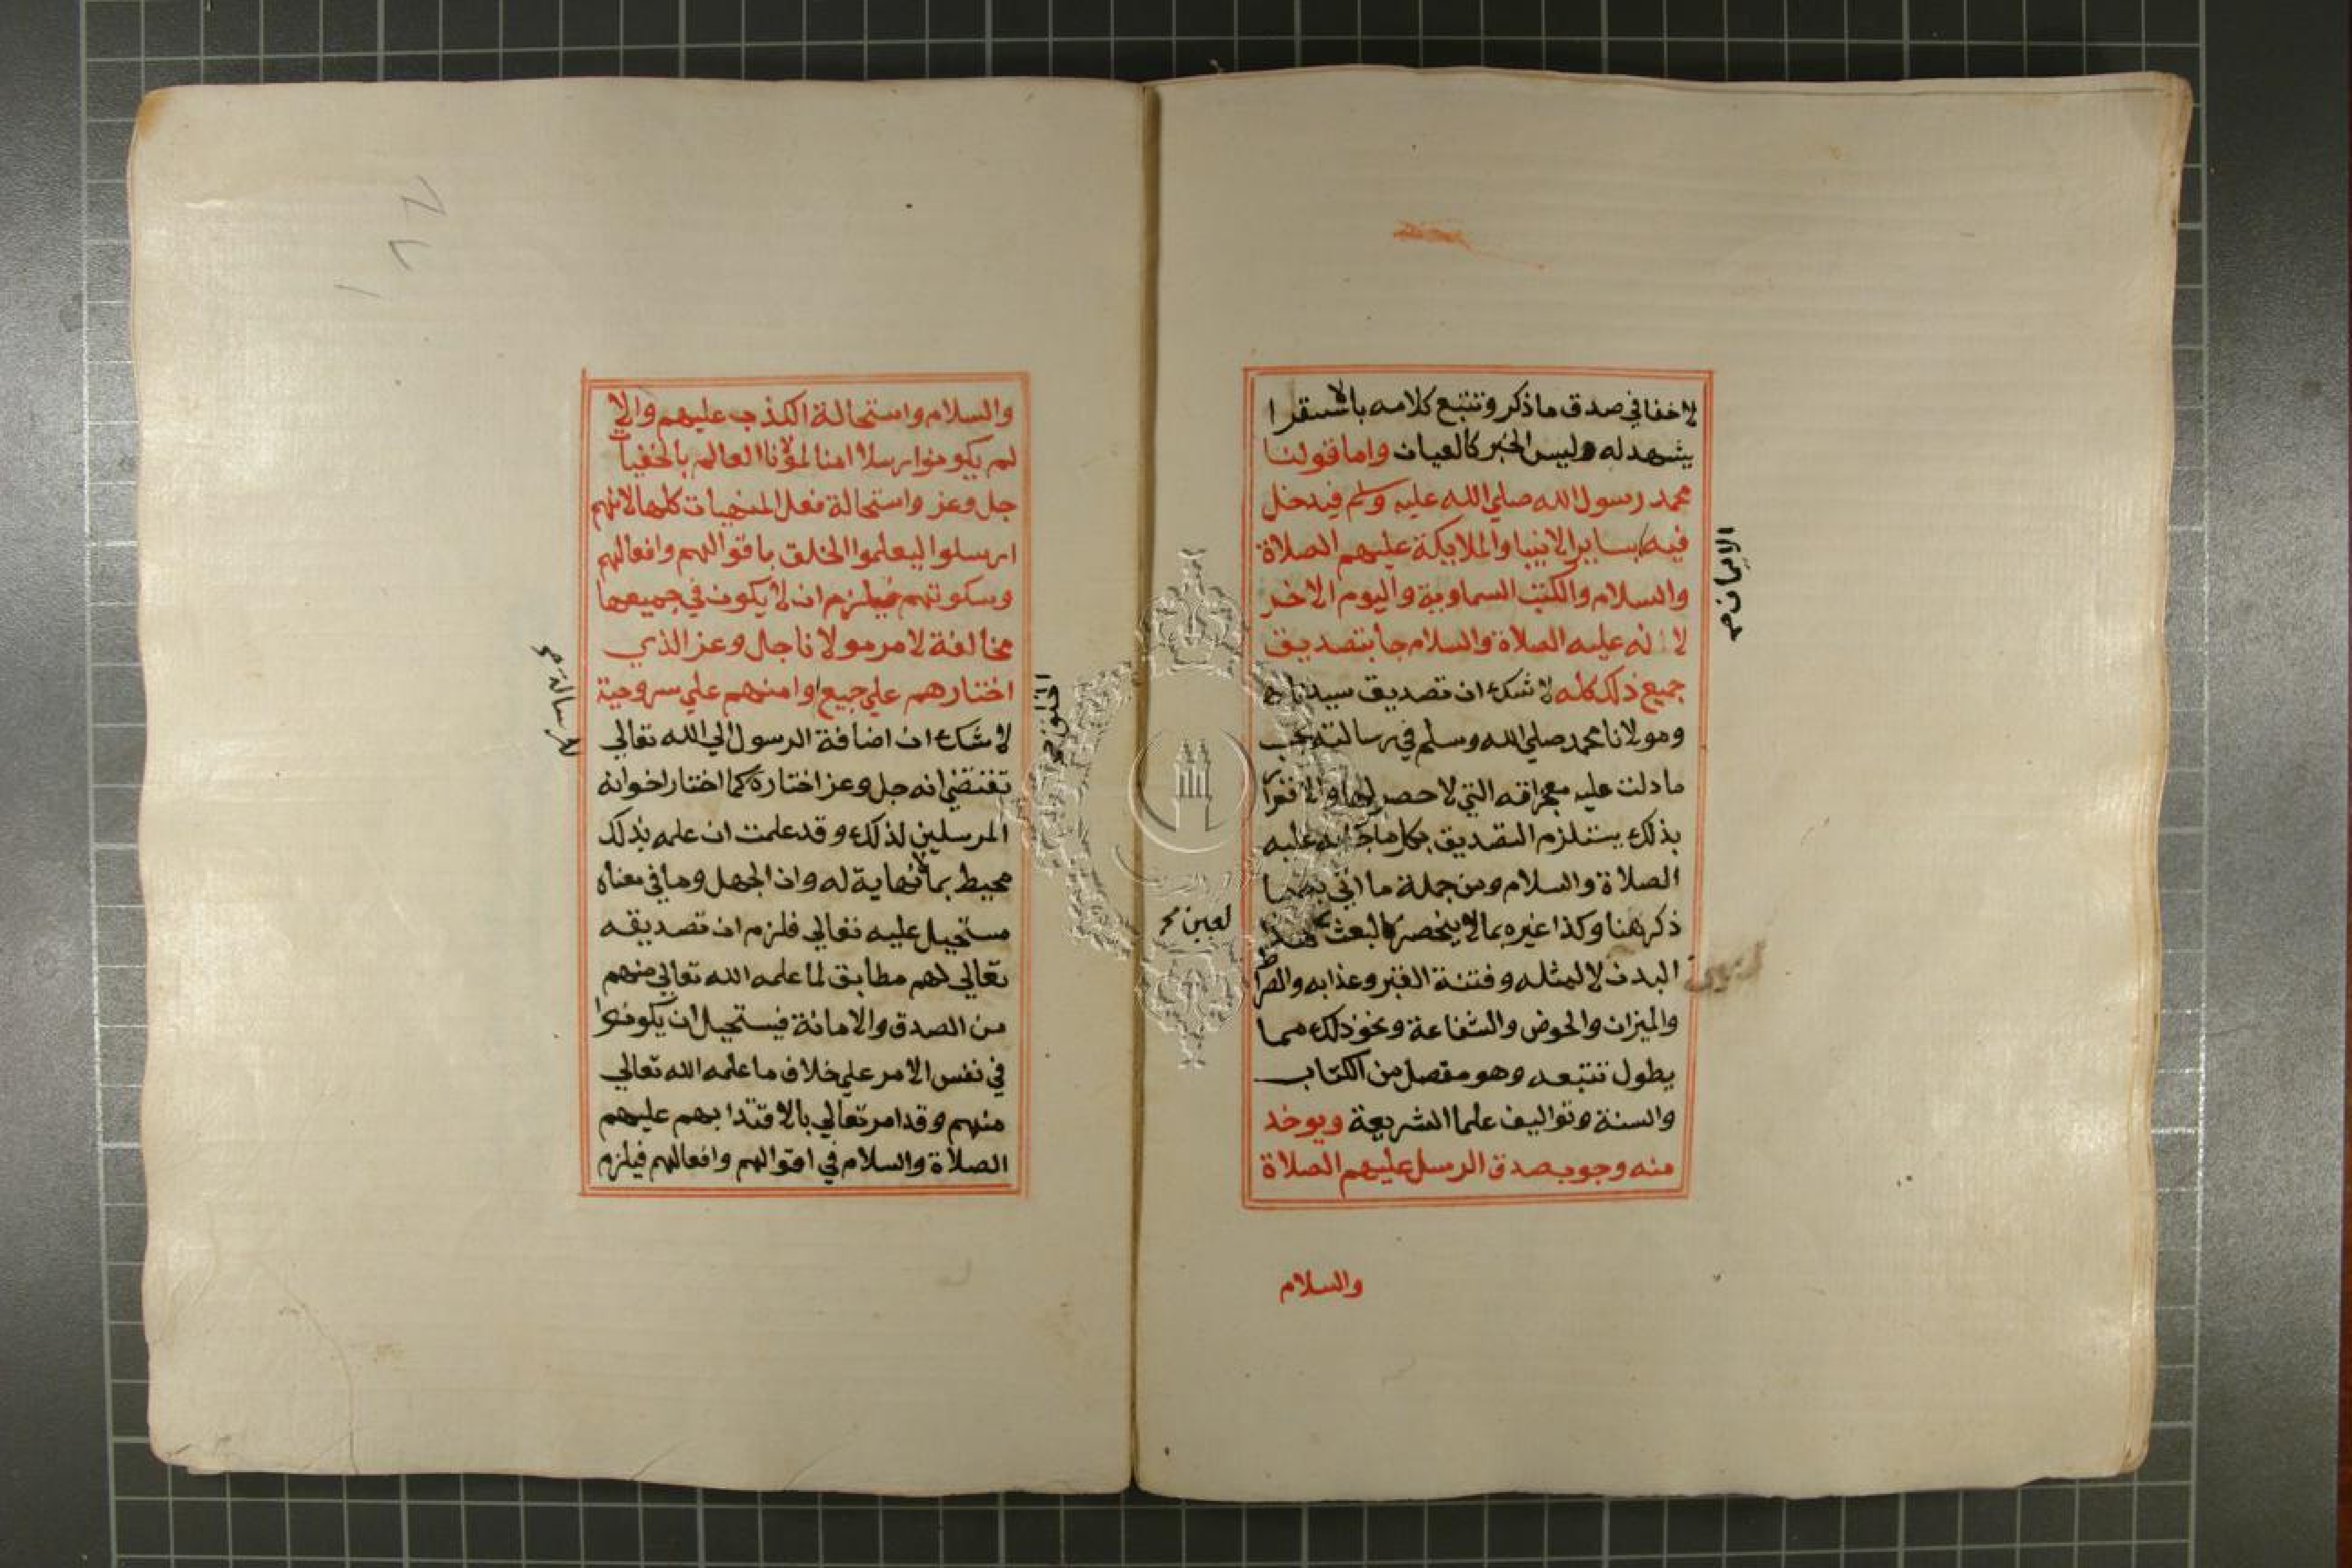 لاخفا في صدق ما ذكر وتتبع كلامه بالاستقرا
يشهد له وليس الخبر كالعيان واما قولنا
محمد رسول الله صلي الله عليه وسلم فيدخل
فيه بساير الانبيا والملايكة عليهم الصلاة
والسلام والكتب السماوية واليوم الاخر
لانه عليه الصلاة والسلام جا بتصديق
جميع ذلك كله لا شك ان تصديق سيدنا
ومولانا محمد صلي الله وسلم في رسالته
ما دلت عليه معجزاته التي لا حصر لها والاقرار
بذلك يستلزم التصديق بكل ما جا به عليه
الصلاة والسلام ومن جملة ما اتي به ما
ذكر هنا وكذا غيره مما لا ينحصر كالبعث
البدن لا لمثله وفتنة القبر وعذابه والصراط
والميزان والحوض والشفاعة ونحو ذلك مما
يطول تتبعه وهو مفصل من الكتاب
والسنة وتواليف علما الشريعة ويوخد
منه وجوب صدق الرسل عليهم الصلاة
الايمان صح
لعين صح
والسلام
والسلام واستحالة الكذب عليهم والا
لم يكونوا رسلا امنا لمولانا العالم بالخفيات
جل وعز واستحالة فعل المنهيات كلها لانهم
ارسلوا ليعلموا الخلق باقوالهم وافعالهم
وسكوتهم فيلزم ان لا يكون في جميعها
مخالفة لامر مولانا جل وعز الذي
اختارهم علي جميع وامنهم علي سر وحية
لا شك ان اضافة الرسول الي الله تعالي
تقتضي انه جل وعز اختاره كما اختار اخوانه
المرسلين لذلك وقد علمت ان علمه بذلك
محيط بما لا نهاية له وان الجهل وما في معناه
مستحيل عليه تعالي فلزم ان تصديقه
تعالي لهم مطابق لما علمه الله تعالي منهم
من الصدق والامانة فيستحيل ان يكونوا
في نفس الامر علي خلاف ما علمه الله تعالي
منهم وقد امر تعالي بالاقتدا بهم عليهم
الصلاة والسلام في اقوالهم وافعالهم فيلزم
الخلق صح
للرسالة صح